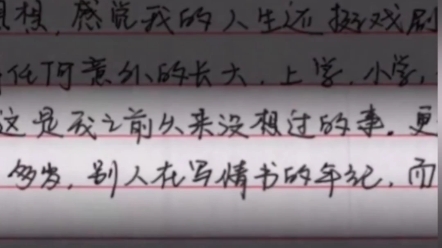 想，感觉我的人生还挺戏剧
任何意外的长大，上学，小学，
这是我之前从来没想过的事。更
多岁，别人在写情书的年纪，而